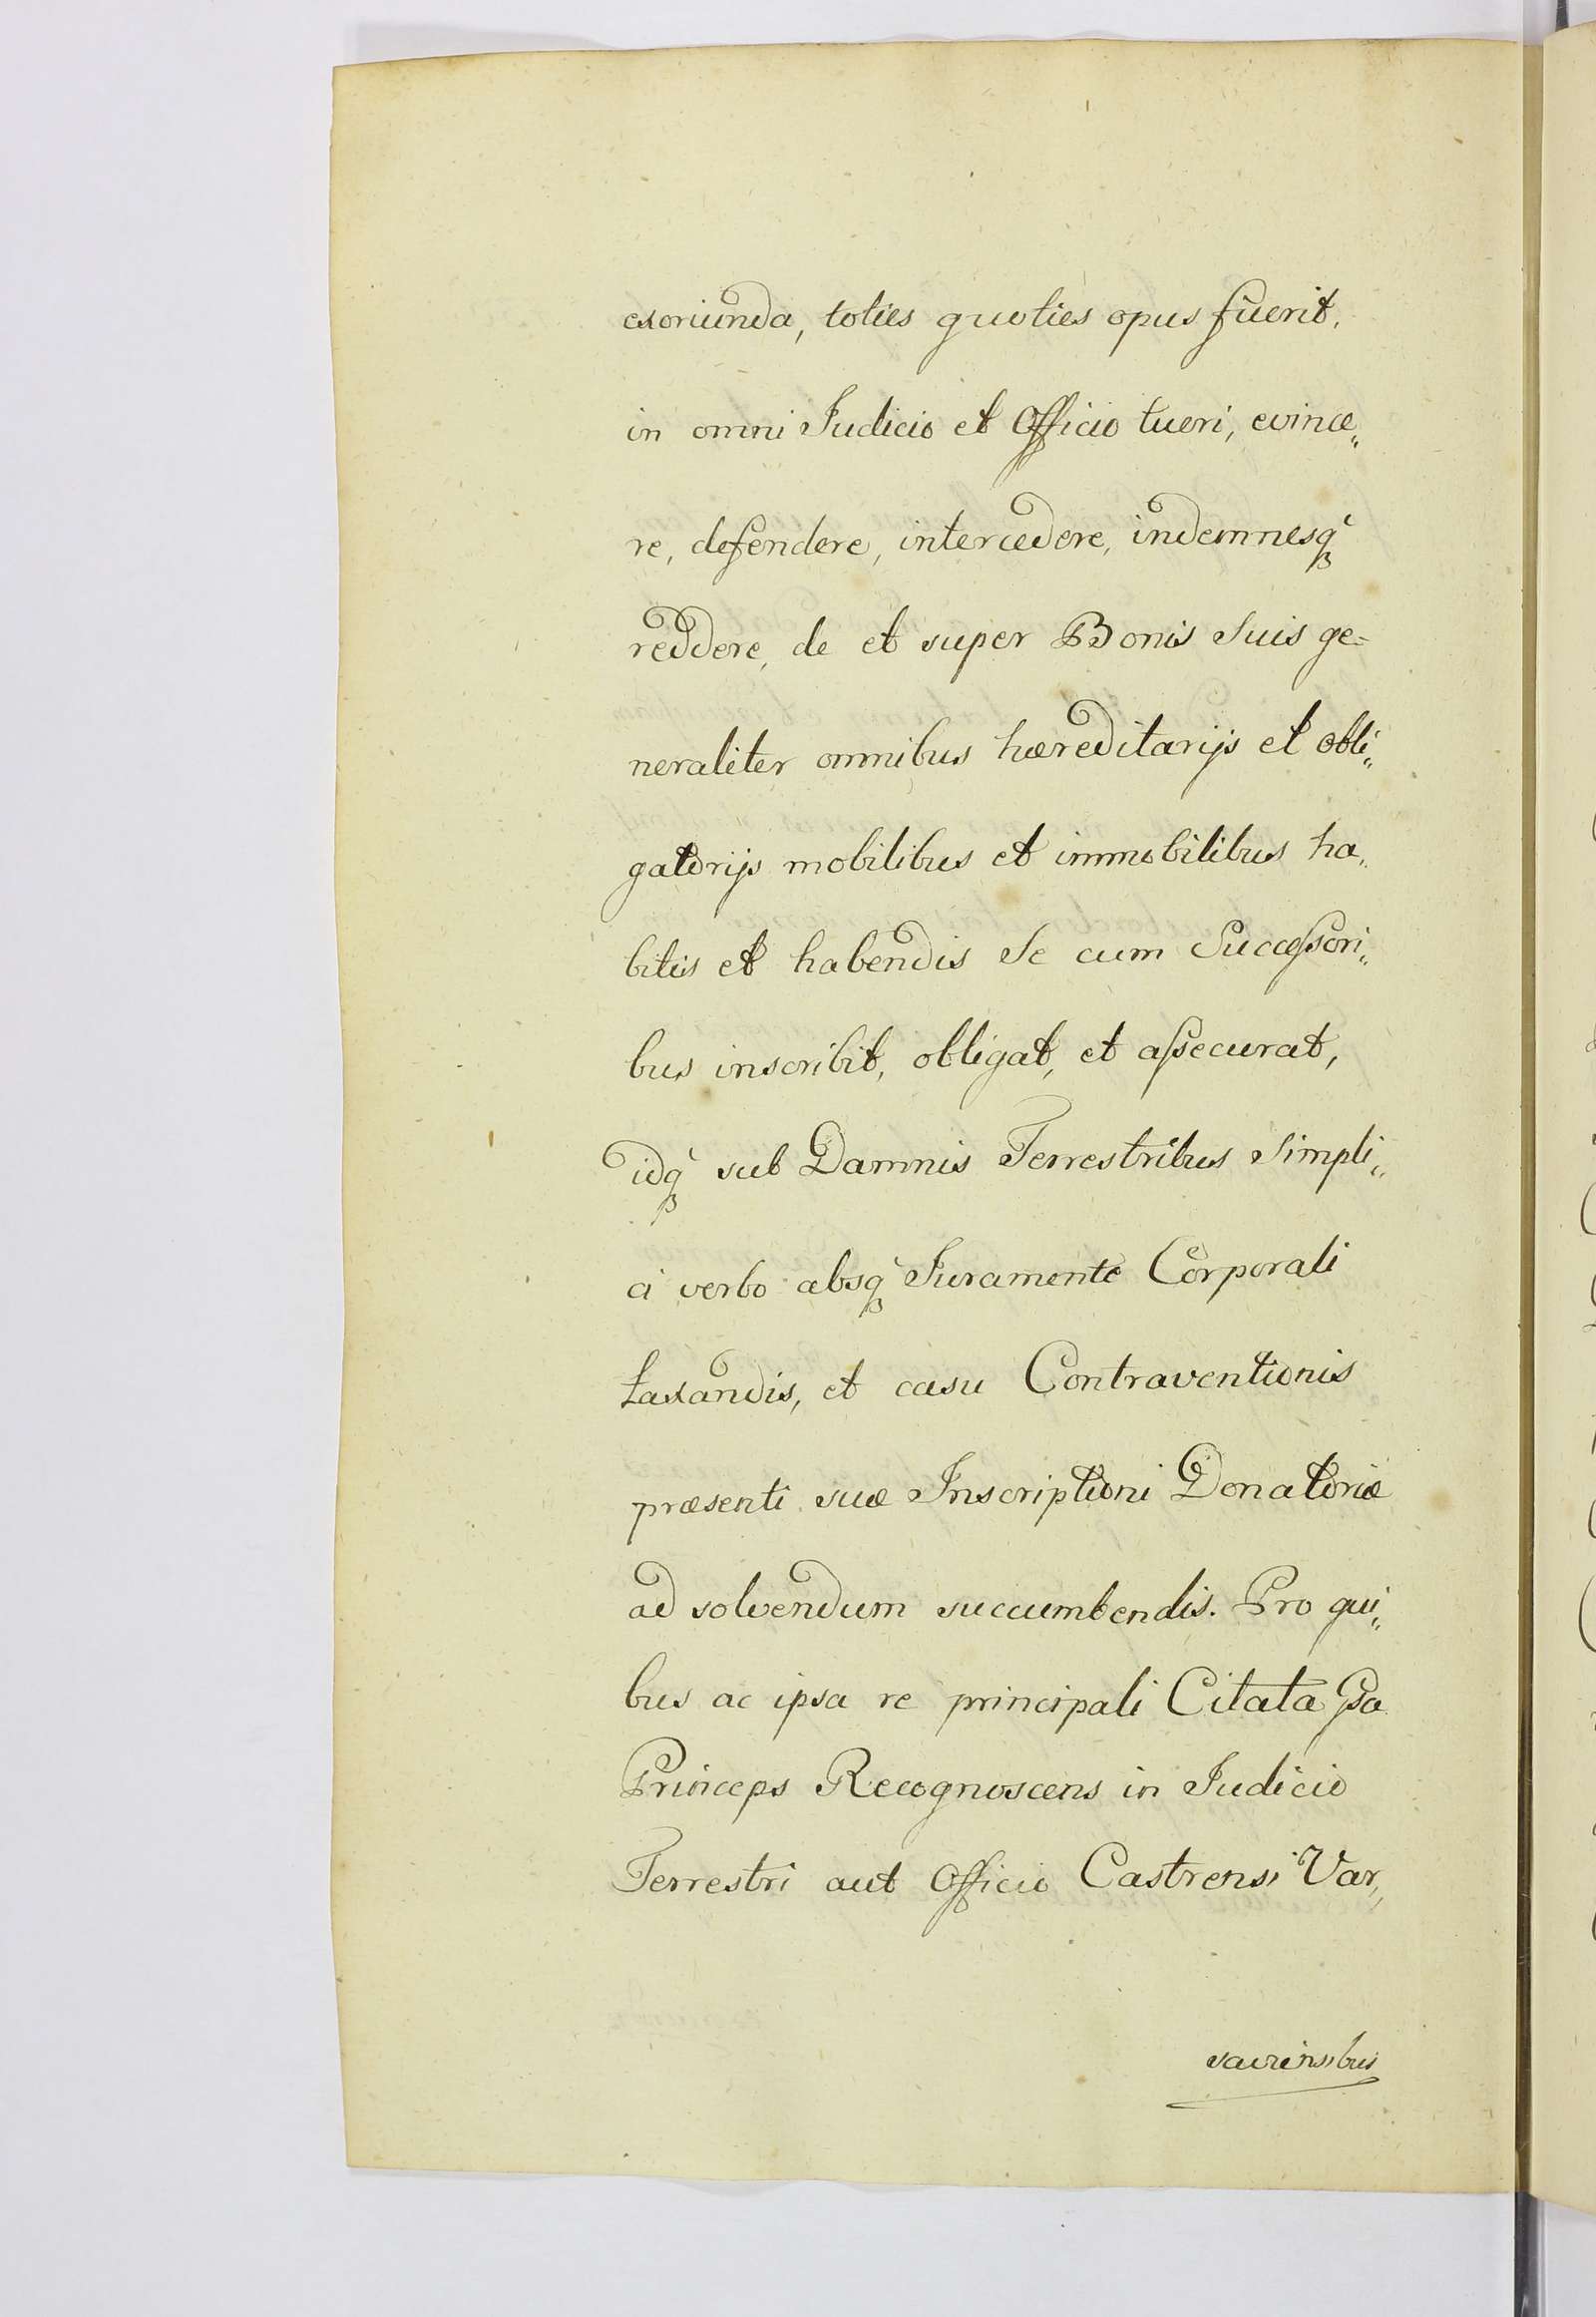 exoriunda, toties quoties opus fuerit,
in omni Judicio et Officio tueri, evince„
re, defendere, intercedere, indemnesq́ꝫ
reddere, de et super Bonis Suis ge=
neraliter omnibus hæreditarijs et obli„
gatorijs mobilibus et immobilibus ha„
bitis et habendis Se cum Succeßori„
bus inscribit, obligat, et aßecurat,
idq́ꝫ sub Damnis Terrestribus Simpli„
ci verbo absq́ꝫ Juramento Corporali
taxandis, et casu Contraventionis
præsenti suæ Inscriptioni Donatoriæ
ad solvendum succumbendis. Pro qui„
bus ac ipsa re principali Citata
Princeps Recognoscens in Judicio
Terrestri aut Officio Castrensi Var„
saviensibus